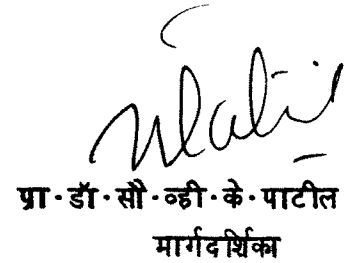 प्रा·डॉ·सौ·व्ही·के·पाटील
मार्गदर्शिका